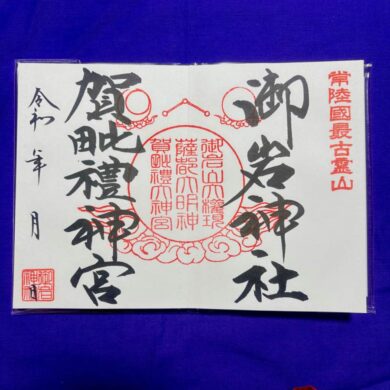 常陸國最古霊山
御岩神社
御岩山大権現
薩都大明神
賀毗禮大神宮
賀毗禮神宮
令和 年 月